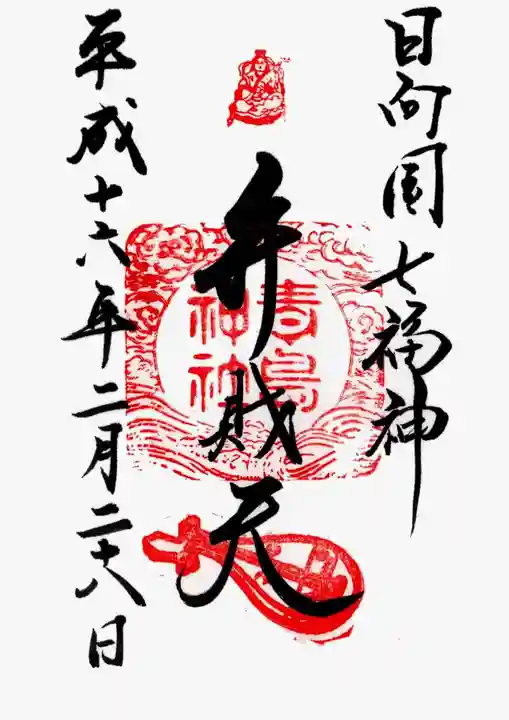 日向國七福神
弁財天
青島神社
平成十六年二月二十八日